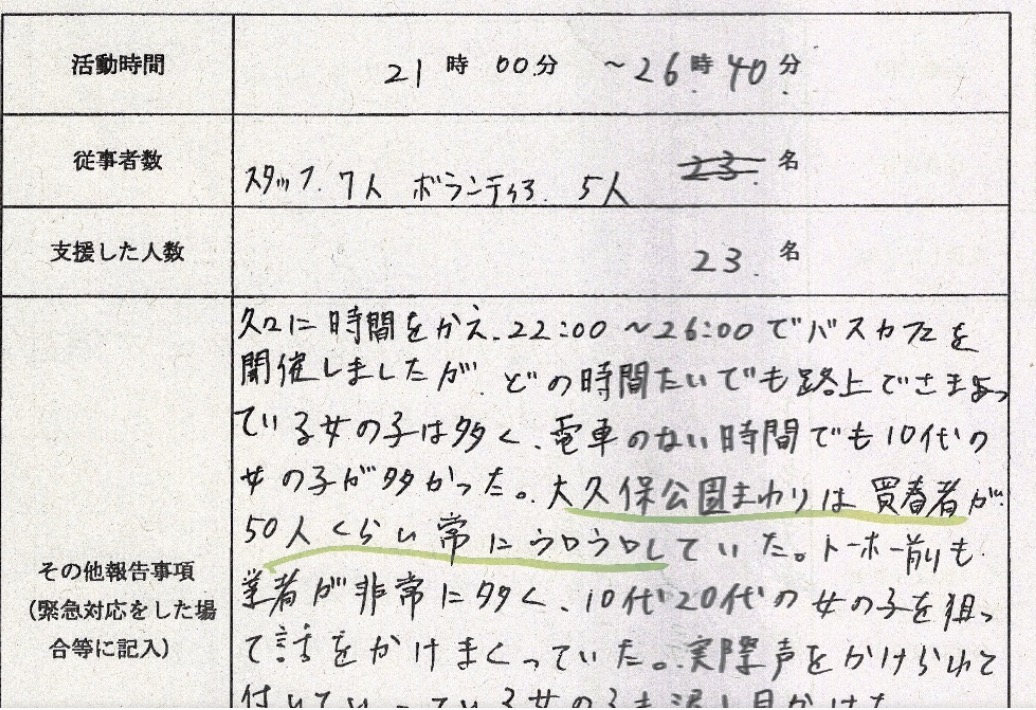 活動時間
21時00分 ~26時40分
従事者数
スタッフ.7人 ボランティア.5人 23.名
支援した人数
23.名
その他報告事項
(緊急対応をした場
合等に記入)
久々に時間をかえ.22:00~26:00でバスカフェを
開催しましたが、どの時間たいでも路上でさまよっ
ている女の子は多く、電車のない時間でも10代の
女の子が多かった。大久保公園まわりは買春者が
50人くらい常にウロウロしていた。トーホー前も
業者が非常に多く、10代20代の女の子を狙っ
て話をかけまくっていた。実際声をかけられて
付いていっている女の子も